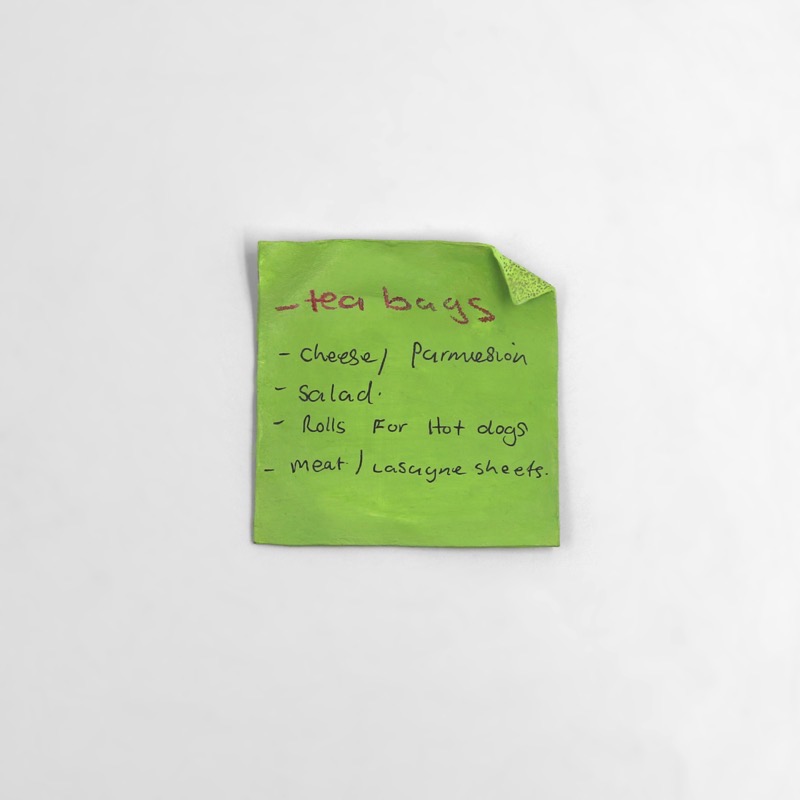 - tea bags
- Cheese/ Parmesion
- Salad.
- Rolls For Hot dogs
- meat / Lasagne sheets.